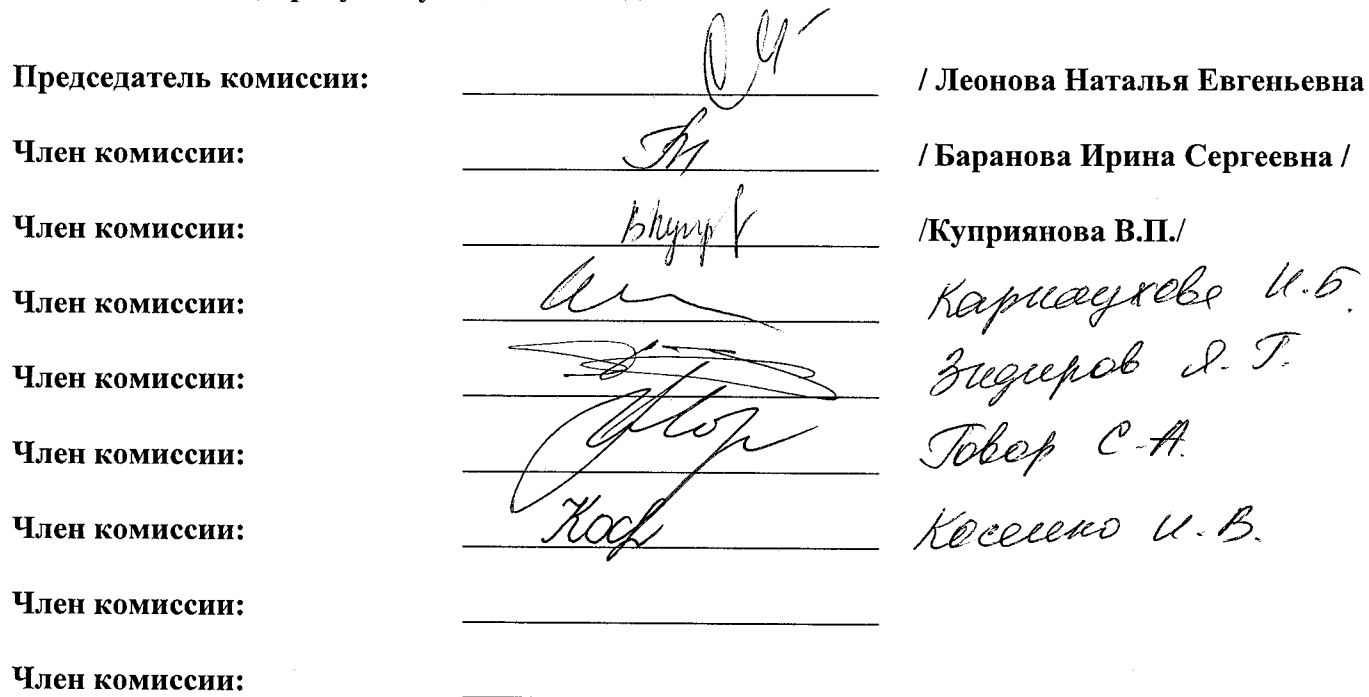 Председатель комиссии: / Леонова Наталья Евгеньевна
Член комиссии: / Баранова Ирина Сергеевна /
Член комиссии: /Куприянова В.П./
Член комиссии: Карнаухова И.Б.
Член комиссии: Зидиров Я.Г.
Член комиссии: Говор С.А.
Член комиссии: И.В.
Член комиссии:
Член комиссии: